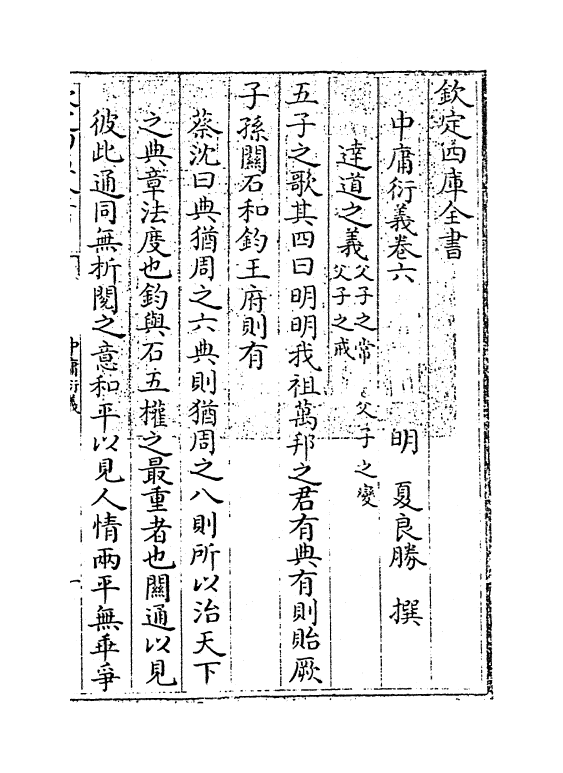 欽定四庫全書
中庸衍義卷六
明 夏良勝 撰
達道之義 父子之常 父子之變 父子之戒
五子之歌其四曰明明我祖萬邦之君有典有則貽厥
子孫關石和鈞王府則有
蔡沈曰典猶周之六典則猶周之八則所以治天下
之典章法度也鈞與石五權之最重者也關通以見
彼此通同無折閱之意和平以見人情兩平無乖爭
中庸衍義